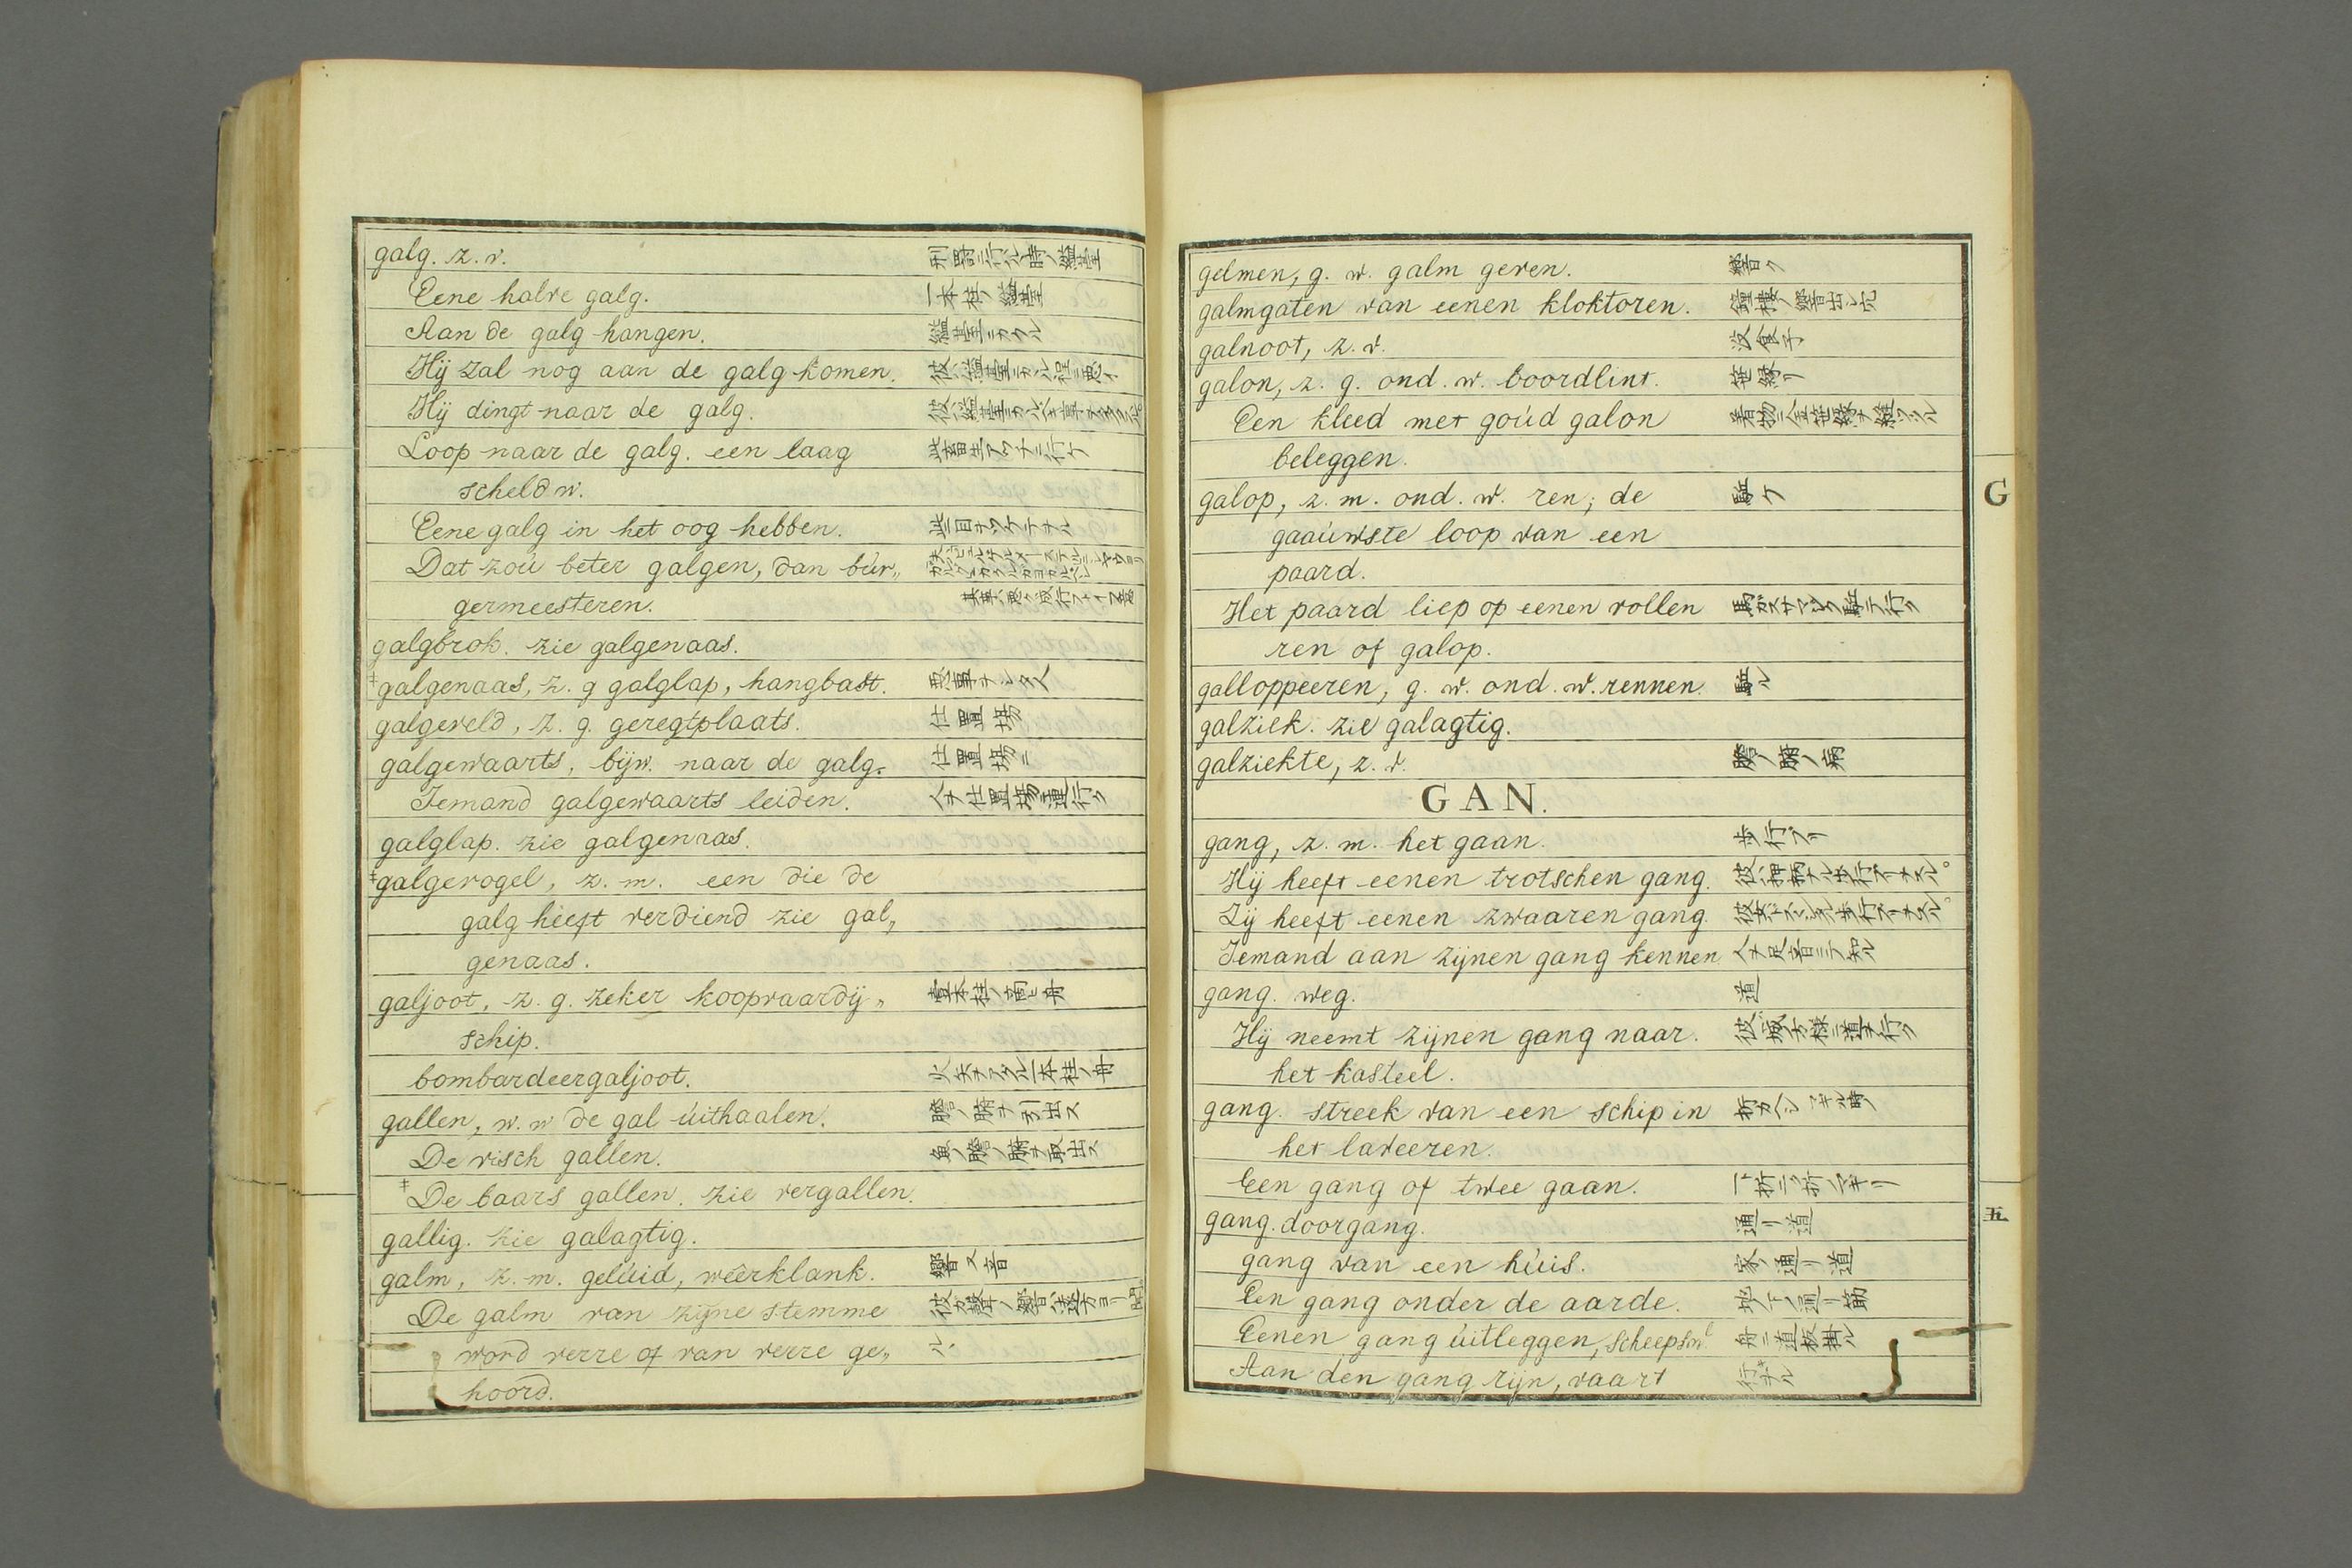 galg. z. v. 刑罰ニ行ハル時ノ縊臺
Eene halve galg. 一本柱ノ縊臺
Aan de galg hangen. 縊臺ニカクル
Hij zal nog aan de galg komen.
Hij dingt naar de galg.
Loop naar de galg. een laag
scheld w.
Eene galg in het oog hebben.
Dat zoú beter galgen, dan búr„
germeesteren.
galgbrok. zie galgenaas.
‡galgenaas, z. g galglap, hangbast. 悪事ヲシタ人
galgeveld, z. g. geregtplaats. 仕置場
galgewaarts, bijw. naar de galg. 仕置場ニ
Iemand galgewaarts leiden. 人ヲ仕置場ニ連行ク
galglap. zie galgenaas.
‡galgevogel, z. m. een die de
galg heeft verdiend zie gal„
genaas.
galjoot, z. g. zeker koopvaardij„ 壹本柱ノ商ヒ舟
schip.
bombardeergaljoot. 火矢ヲスクル一本柱ノ舟
gallen, w. w de gal úithaalen. 膽ノ腑ヲ引出ス
De visch gallen. 魚ノ膽ノ腑ヲ取出ス
‡De baars gallen. zie vergallen.
gallig. zie galagtig.
galm, z. m. gelúid, wêerklank. 響ス音
De galm van zijne stemme
word verre of van verre ge„
hoord.
gelmen, g. w. galm geven. 響ク
galmgaten van eenen kloktoren. 鐘樓ノ響出シ穴
galnoot, z. v. 没食子
galon, z. g. ond. w. boordlint. 笹縁リ
Een kleed met goúd galon 着物ニ金笹縁ヲ縫ツクル
beleggen.
galop, z. m. ond. w. ren; de 駈ケ
gaaúwste loop van een
paard.
Het paard liep op eenen vollen
ren of galop.
galloppeeren, g. w. ond. w. rennen. 駈ル
galziek. zie galagtig.
galziekte, z. v. 膽ノ腑ノ病
GAN.
gang, z. m. het gaan. 歩行ブリ
Hij heeft eenen trotschen gang.
Zij heeft eenen zwaaren gang.
Iemand aan zijnen gang kennen. 人ヲ足音ニテ知ル
gang. weg. 道
Hij neemt zijnen gang naar.
het kasteel.
gang. streek van een schip in
het laveeren.
Een gang of twee gaan.
gang. doorgang. 通リ道
gang van een húis. 家ノ通リ道
Een gang onder de aarde. 地ノ下ノ通リ筋
Eenen gang úitleggen, scheepsw. 舟ニ道板掛ル
Aan den gang zijn, vaart
G
五